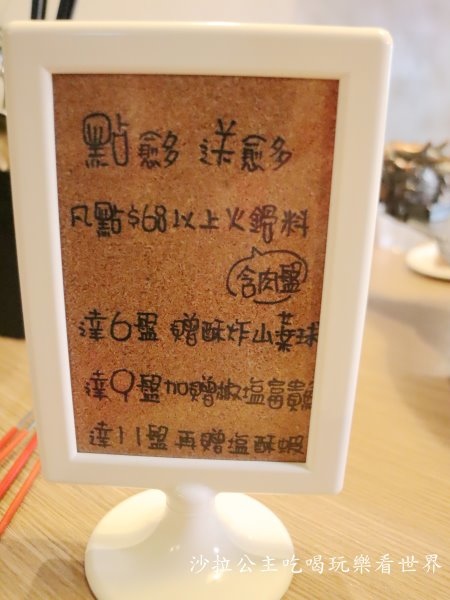 點愈多 送愈多
凡點$68以上火鍋料
含肉盤
達6盤 贈酥炸山藥球
達9盤加贈椒塩富貴
達11盤再贈塩酥蝦
沙拉公主吃喝玩樂看世界